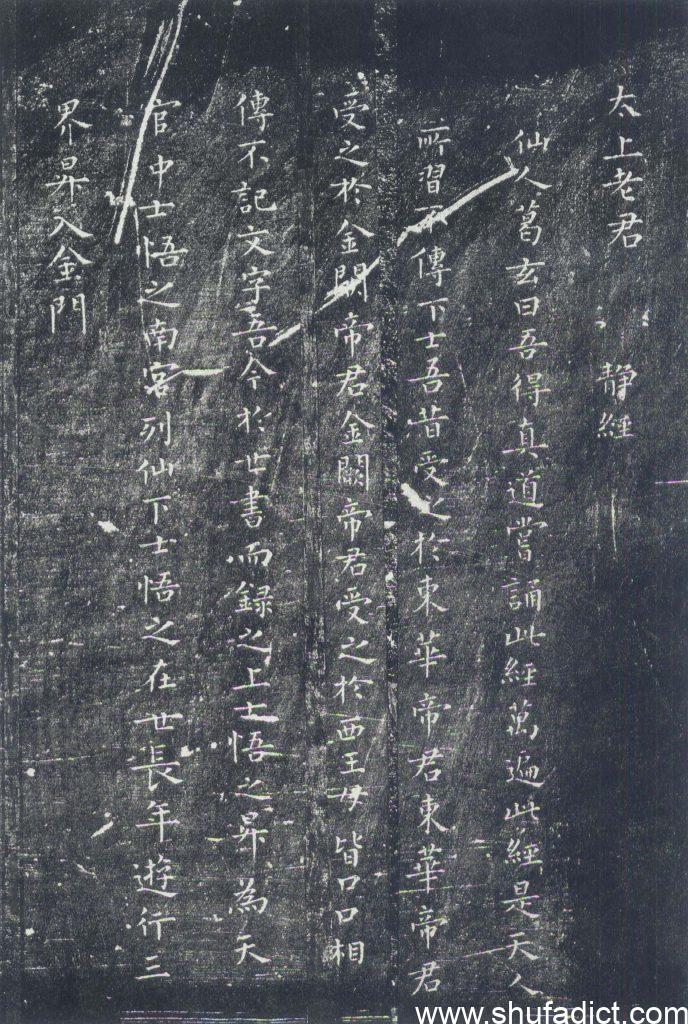 太上老君 靜經
仙人葛玄曰吾得真道嘗誦此經萬遍此經是天人
所習不傳下士吾昔受之於東華帝君東華帝君
受之於金闕帝君金闕帝君受之於西王母皆口口相
傳不記文字吾今於世書而録之上士悟之昇為天
官中士悟之南宮列仙下士悟之在世長年遊行三
界昇入金門
www.shufadict.com